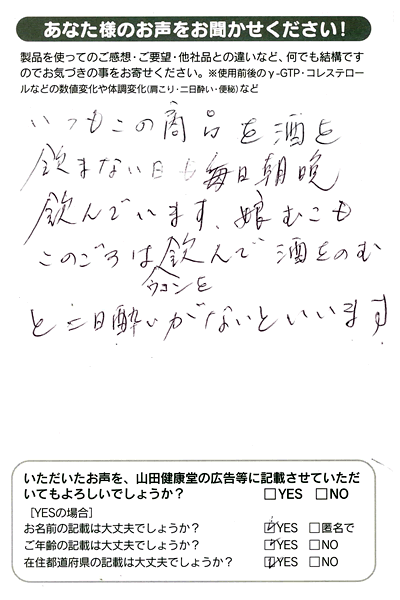 あなた様のお声をお聞かせください！
製品を使ってのご感想・ご要望・他社品との違いなど、何でも結構です
のでお気づきの事をお寄せください。※使用前後のγ-GTP・コレステロー
ルなどの数値変化や体調変化(肩こり・二日酔い・便秘)など
いつもこの商品を酒を
飲まない日も毎日朝晩
飲んでいます、娘むこも
このごろは飲んで酒をのむ
ウコンを
と二日酔いがないといいます
いただいたお声を、山田健康堂の広告等に記載させていただ
いてもよろしいでしょうか？ □YES □NO
［YESの場合］
お名前の記載は大丈夫でしょうか？ ☑YES □匿名で
ご年齢の記載は大丈夫でしょうか？ ☑YES □NO
在住都道府県の記載は大丈夫でしょうか？ ☑YES □NO